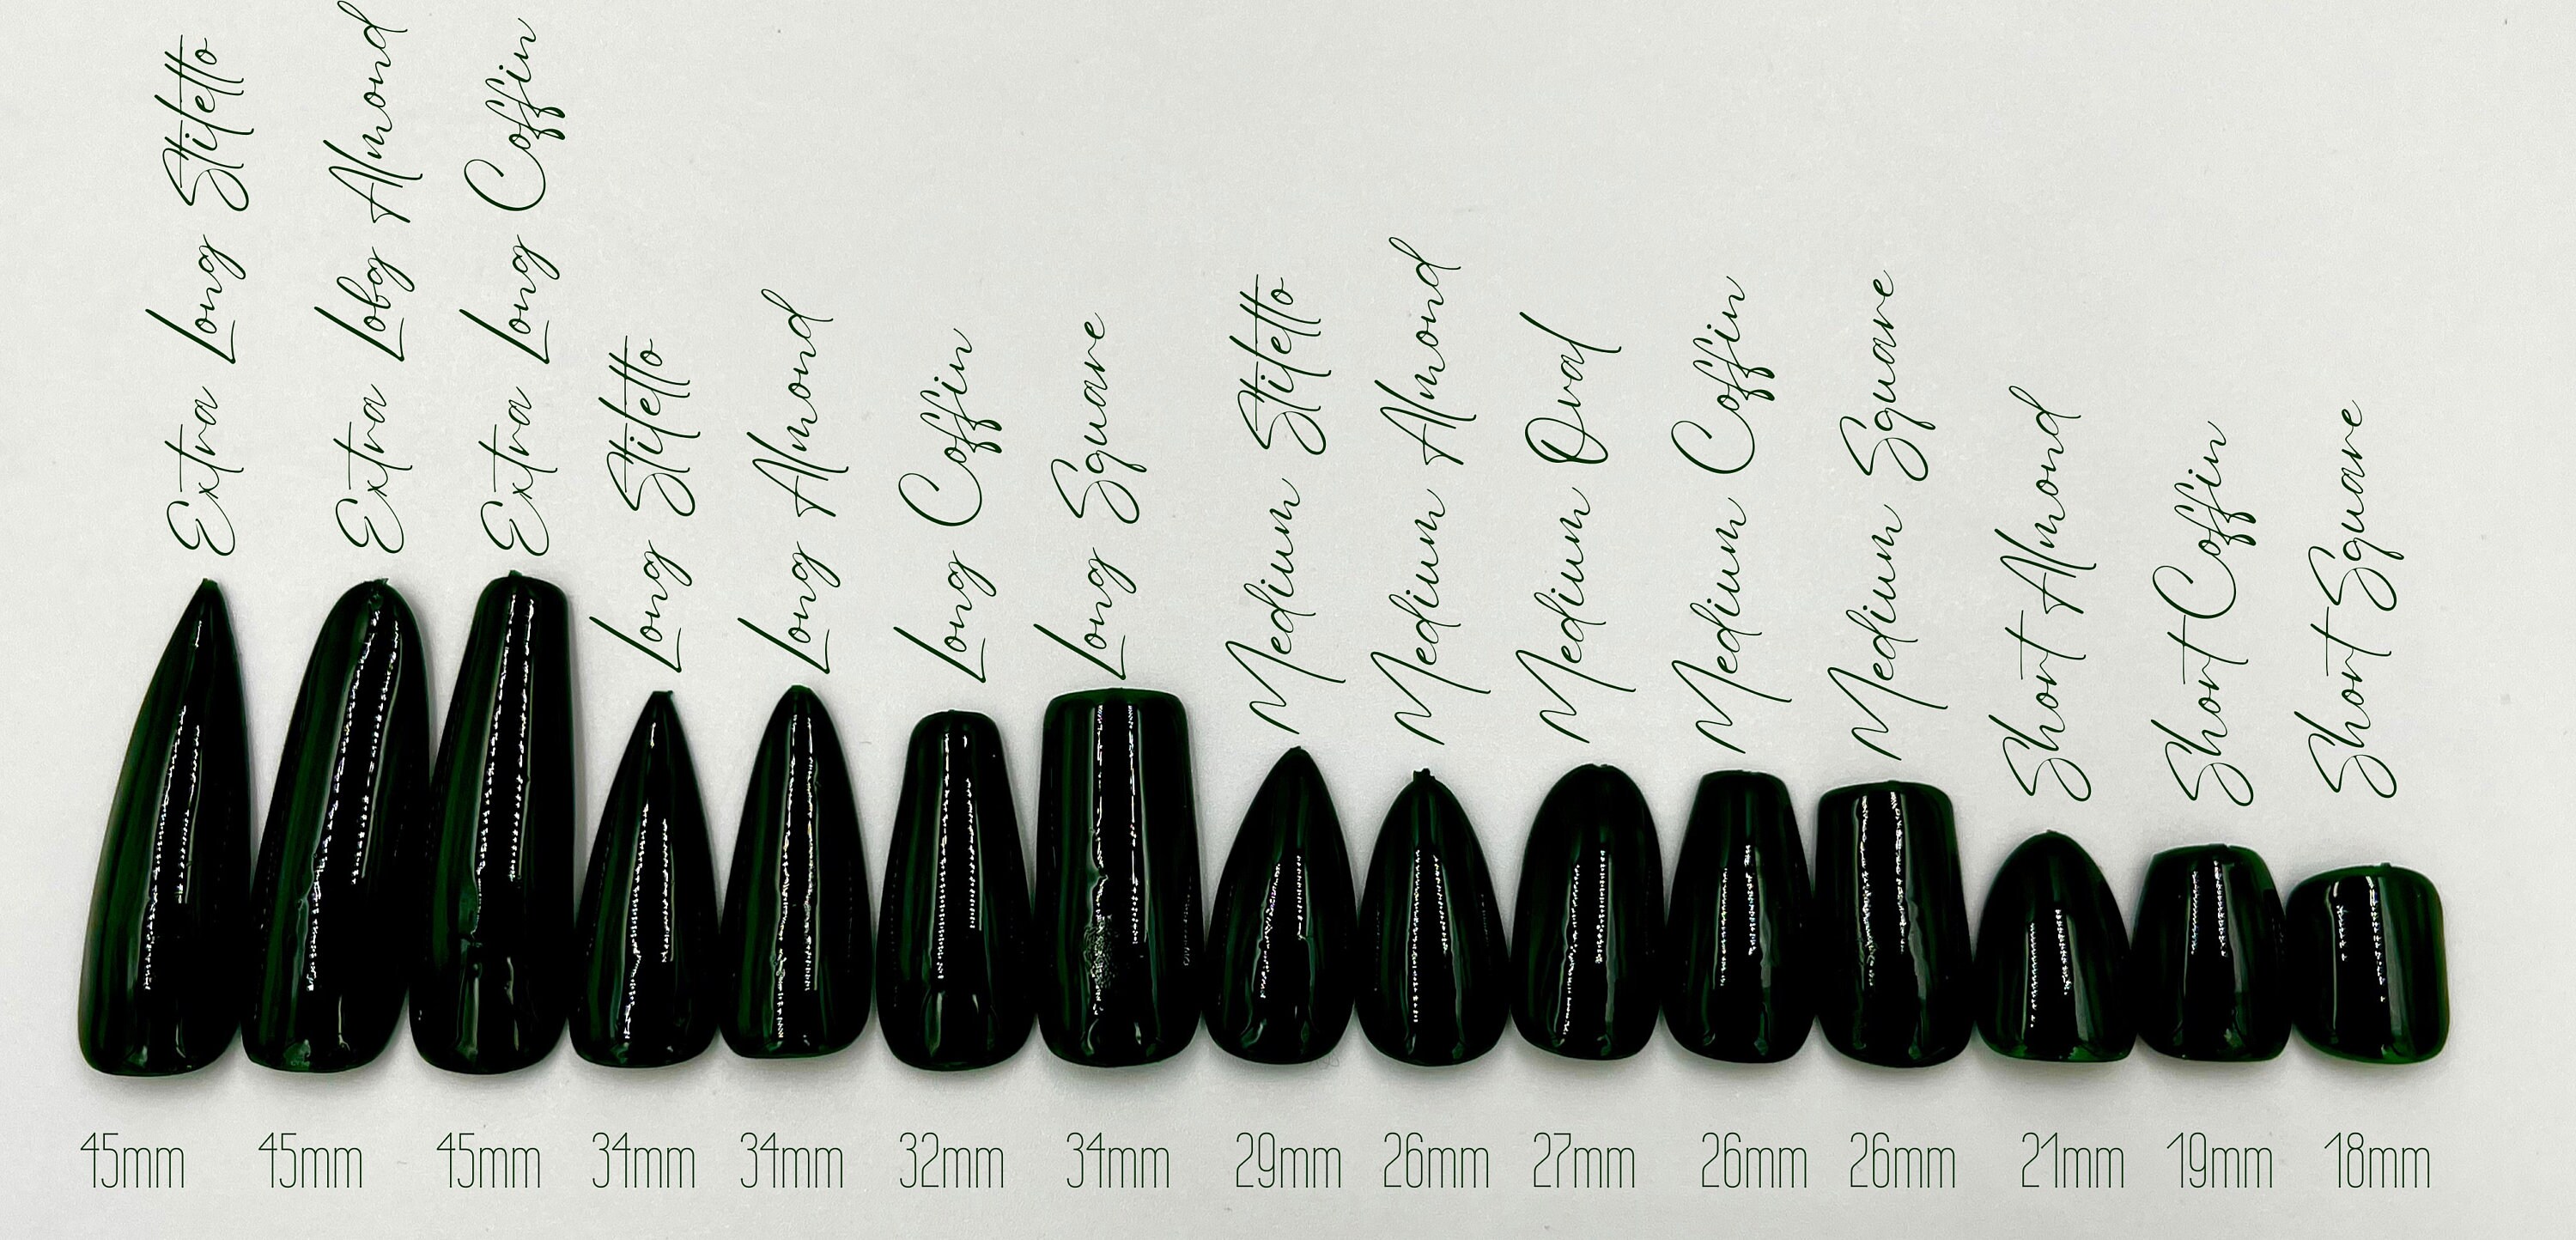 Extra Long Stiletto
Extra Loby Almond
Extra Long Coffin
Long Stiletto
Long Almond
Long Coffin
Long Square
Medium Stiletto
Medium Almond
Medium Oval
Medium Coffin
Medium Square
Short Almond
Short Coffin
Short Square
45mm 45mm 45mm 34mm 34mm 32mm 34mm 29mm 26mm 27mm 26mm 26mm 21mm 19mm 18mm